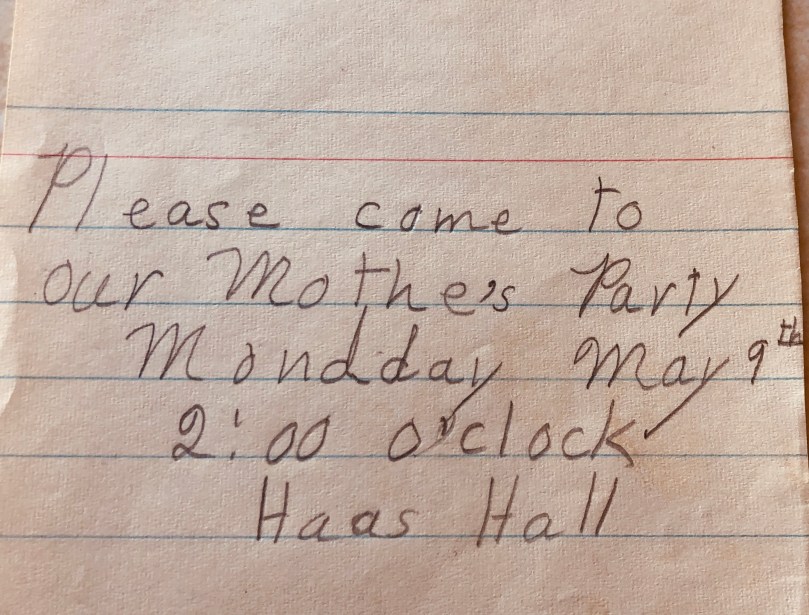 Please come to
our Mothe's Party
Mondday May 9th
2:00 o'clock
Haas Hall